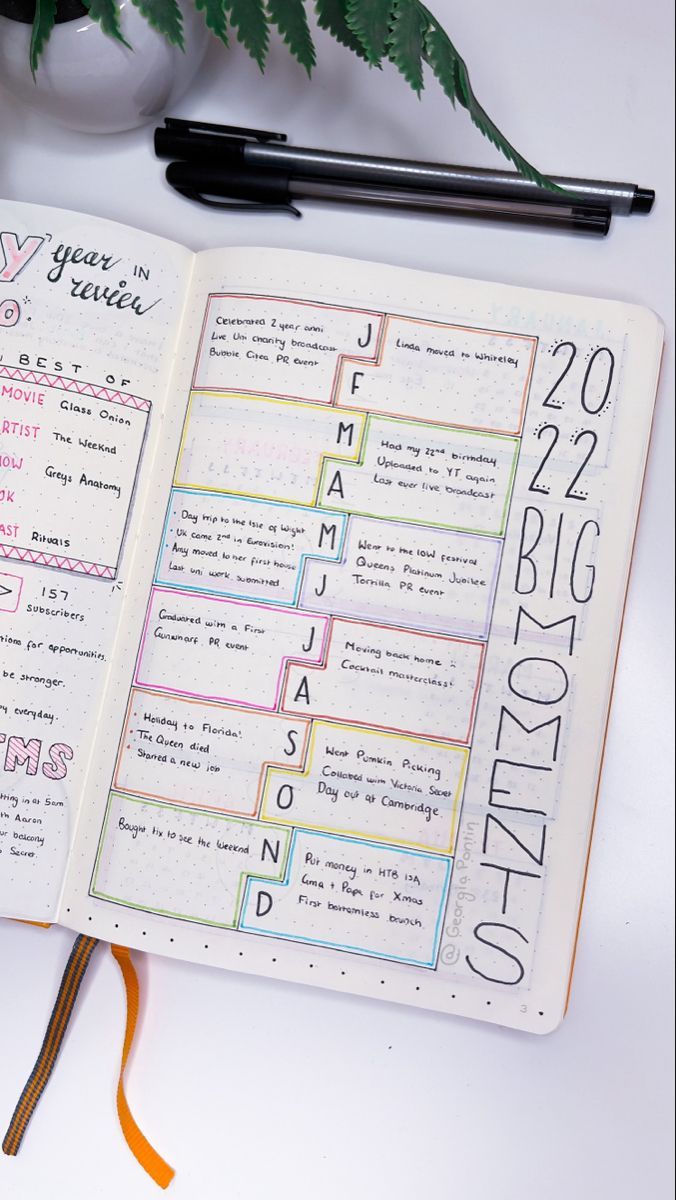 Y year IN
review
O.
BEST OF
MOVIE Glass Onion
ARTIST The Weeknd
OW Greys Anatomy
OK
AST Rituals
> 157
subscribers
tions for opportunities.
be stronger.
y everyday.
TMS
tting in at 5am
th Aaron
ur balcony
Secret
20
22
BIG
MOMENTS
J
Celebrated 2 year anni
Live Uni charity broadcast
Bubble Citea PR event
F
Linda moved to Whiteley
M
A
Had my 22nd birthday
Uploaded to YT again
Last ever live broadcast
M
• Day trip to the Isle of Wight
• UK came 2nd in Eurovision!
• Amy moved to her first house
Last uni work submitted
J
Went to the IOW festival
Queens Platinum Jubilee
Tortilla PR event
J
Graduated with a First
Gunwharf PR event
A
Moving back home :(
Cocktail masterclass!
S
• Holiday to Florida!
• The Queen died
• Started a new job
O
Went Pumkin Picking
Collabed with Victoria Secret
Day out at Cambridge
N
Bought tix to see the Weeknd
D
Put money in HTB ISA
Gma + Papa for Xmas
First bottomless brunch
@Georgia Pontin
3
JANUARY